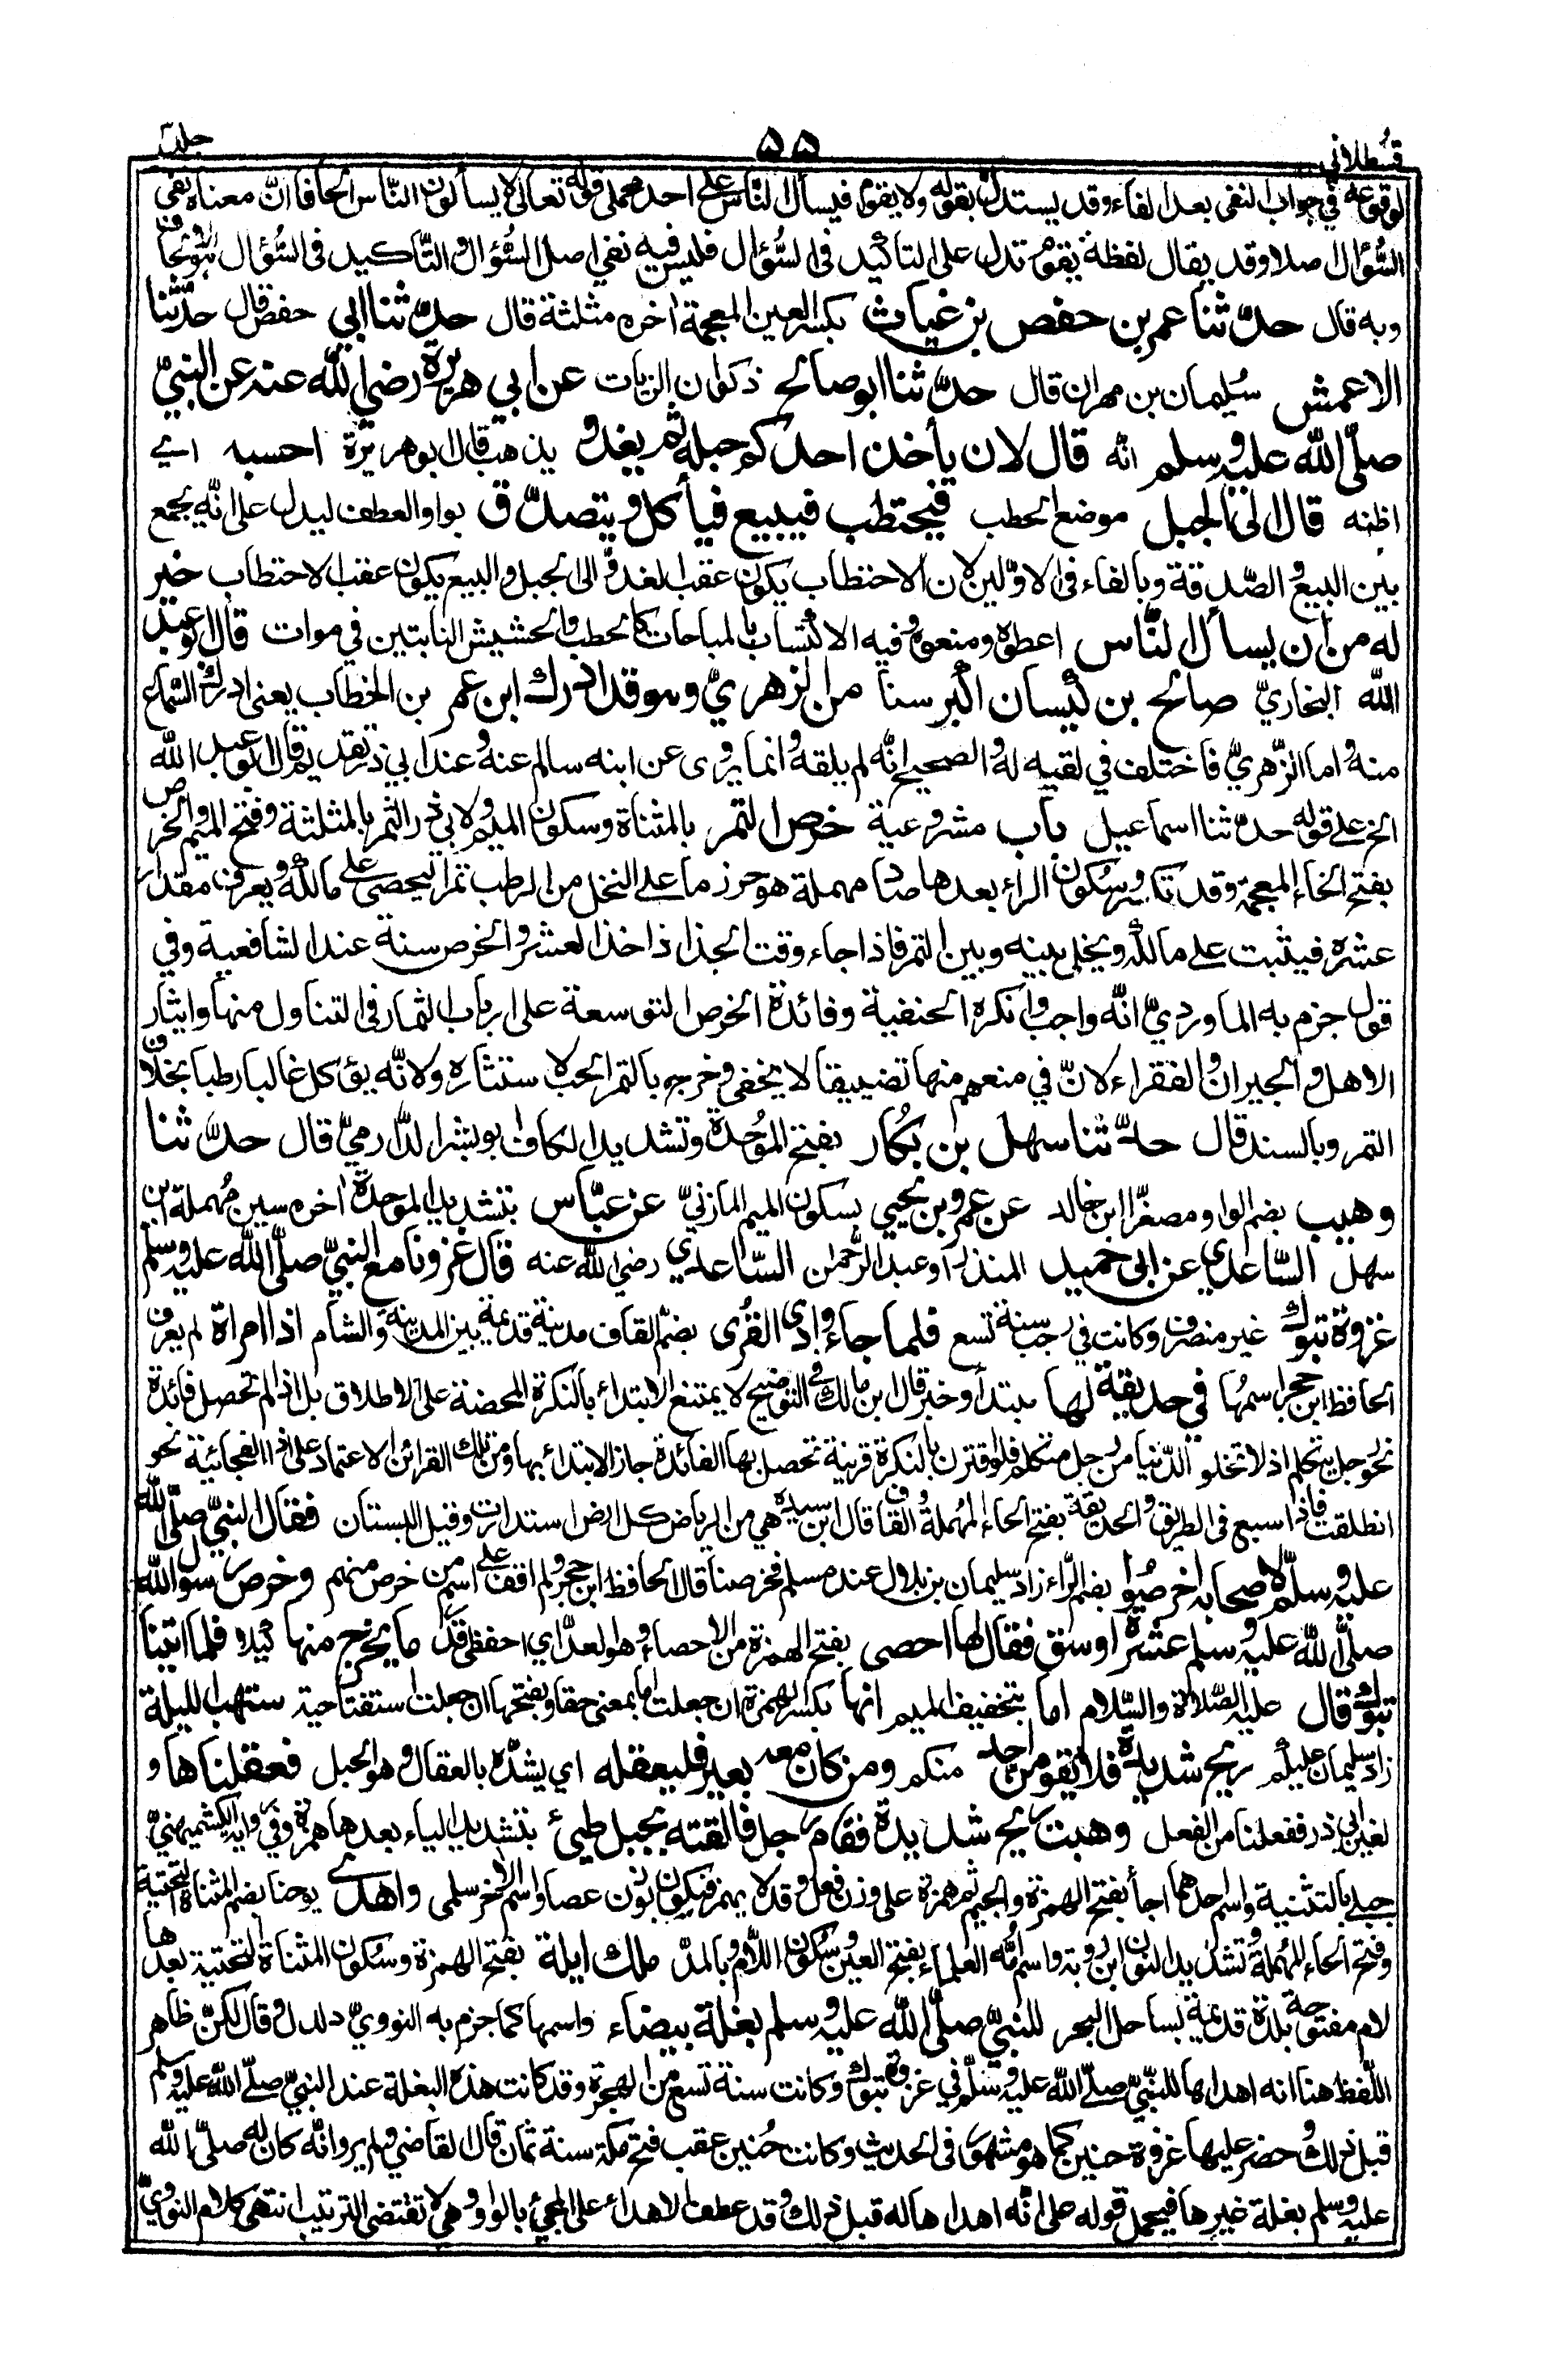 قسطلاني
٥٥
جلد
لوقوعه في جواب النفي بعد الفاء وقد يستدل بقوله ولا يقوم فيسأل الناس على احد محملي قوله تعالى لا يسألون الناس الحافا ان معناه نفي
السؤال اصلا وقد يقال لفظة يقوم تدل على التأكيد في السؤال فليس فيه نفي اصل السؤال والتأكيد في السؤال هو الالحاف
وبه قال حدثنا عمر بن حفص بن غياث بكسر الغين المعجمة اخره مثلثة قال حدثنا ابي حفص قال حدثنا
الاعمش سليمان بن مهران قال حدثنا ابو صالح ذكوان الزيات عن ابي هريرة رضي الله عنه عن النبي
صلى الله عليه وسلم انه قال لان يأخذ احدكم حبله ثم يغدو يذهب قال ابو هريرة احسبه اي
اظنه قال الى الجبل موضع الحطب فيحتطب فيبيع فيأكل ويتصدق بواو العطف ليدل على انه يجمع
بين البيع والصدقة وبالفاء في الاولين لان الاحتطاب يكون عقب الغدو الى الجبل والبيع يكون عقب الاحتطاب خير
له من ان يسأل الناس اعطوه ومنعوه وفيه الاكتساب بالمباحات كالحطب والحشيش النابتين في موات قال ابو عبد
الله البخاري صالح بن كيسان اكبر سنا من الزهري وهو قد ادرك ابن عمر بن الخطاب يعني ادرك السماع
منه واما الزهري فاختلف في لقيه له والصحيح انه لم يلقه وانما يروى عن ابنه سالم عنه وعند ابي ذر تقديم قال ابو عبد الله
الخ على قوله حدثنا اسماعيل باب مشروعية خرص التمر بالمثناة وسكون الميم ولابي ذر الثمر بالمثلثة وفتح الميم والخرص
بفتح الخاء المعجمة وقد تكسر وسكون الراء بعدها صاد مهملة هو حرز ما على النخل من الرطب تمرا ليحصى على مالكه ويعرف مقدار
عشره فيثبت على مالكه ويخلى بينه وبين التمر فاذا جاء وقت الجذاذ اخذ العشر والخرص سنة عند الشافعية وفي
قول جزم به الماوردي انه واجب وانكره الحنفية وفائدة الخرص التوسعة على ارباب الثمار في التناول منها وايثار
الاهل والجيران والفقراء لان في منعهم منها تضييقا لا يخفى وخرج بالتمر الحب لاستتاره ولانه يؤكل غالبا رطبا بخلاف
التمر وبالسند قال حدثنا سهل بن بكار بفتح الموحدة وتشديد الكاف ابو بشر الدارمي قال حدثنا
وهيب بضم الواو مصغرا ابن خالد عن عمرو بن يحيى بسكون الميم المازني عن عباس بتشديد الموحدة اخره سين مهملة ابن
سهل الساعدي عن ابي حميد المنذر او عبد الرحمن الساعدي رضي الله عنه قال غزونا مع النبي صلى الله عليه وسلم
غزوة تبوك غير منصرف وكانت في رجب سنة تسع فلما جاء وادي القرى بضم القاف مدينة قديمة بين المدينة والشام اذا امراة لم يعرف
الحافظ ابن حجر اسمها في حديقة لها مبتدأ وخبر قال ابن مالك في التوضيح لا يمتنع الابتداء بالنكرة المحضة على الاطلاق بل اذا لم تحصل فائدة
نحو رجل يتكلم اذ لا تخلو الدنيا من رجل متكلم فلو اقترن بالنكرة قرينة تحصل بها الفائدة جاز الابتداء بها ومن تلك القرائن الاعتماد على اذا الفجائية نحو
انطلقت فاذا سبع في الطريق والحديقة بفتح الحاء المهملة والقاف قال ابن سيده هي من الرياض كل ارض استدارت وقيل البستان فقال النبي صلى الله
عليه وسلم لاصحابه اخرصوا بضم الراء زاد سليمان بن بلال عند مسلم فخرصنا قال الحافظ ابن حجر ولم اقف على اسم من خرص منهم وخرص رسول الله
صلى الله عليه وسلم عشرة اوسق فقال لها احصى بفتح الهمزة من الاحصاء وهو العد اي احفظي قدر ما يخرج منها كيلا فلما اتينا
تبوك قال عليه الصلاة والسلام اما بتخفيف الميم انها بكسر الهمزة ان جعلت اما بمعنى حقا وبفتحها ان جعلت استفتاحية ستهب الليلة
زاد سليمان عليكم ريح شديدة فلا يقومن احد منكم ومن كان معه بعير فليعقله اي يشده بالعقال وهو الحبل فعقلناها و
لغير ابي ذر ففعلنا من الفعل وهبت ريح شديدة فقام رجل فالقته بجبل طيئ بتشديد الياء بعدها همزة وفي رواية الكشميهني
جبلي بالتثنية واسم احدهما اجأ بفتح الهمزة والجيم ثم همزة على وزن فعل وقد لا يهمز فيكون بوزن عصا واسم الاخر سلمى واهدى يوحنا بضم المثناة التحتية
وفتح الحاء المهملة وتشديد النون ابن روبة واسم امه العلماء بفتح العين وسكون اللام وبالمد ملك ايلة بفتح الهمزة وسكون المثناة التحتية بعدها
لام مفتوحة بلدة قديمة بساحل البحر للنبي صلى الله عليه وسلم بغلة بيضاء واسمها كما جزم به النووي دلدل وقال لكن ظاهر
اللفظ هنا انه اهداها للنبي صلى الله عليه وسلم في غزوة تبوك وكانت سنة تسع من الهجرة وقد كانت هذه البغلة عند النبي صلى الله عليه وسلم
قبل ذلك وحضر عليها غزوة حنين كما هو مشهور في الحديث وكانت حنين عقب فتح مكة سنة ثمان قال القاضي ولم يرو انه كان له صلى الله
عليه وسلم بغلة غيرها فيحمل قوله على انه اهداها له قبل ذلك وقد عطف الاهداء على المجئ بالواو وهي لا تقتضي الترتيب انتهى كلام النووي